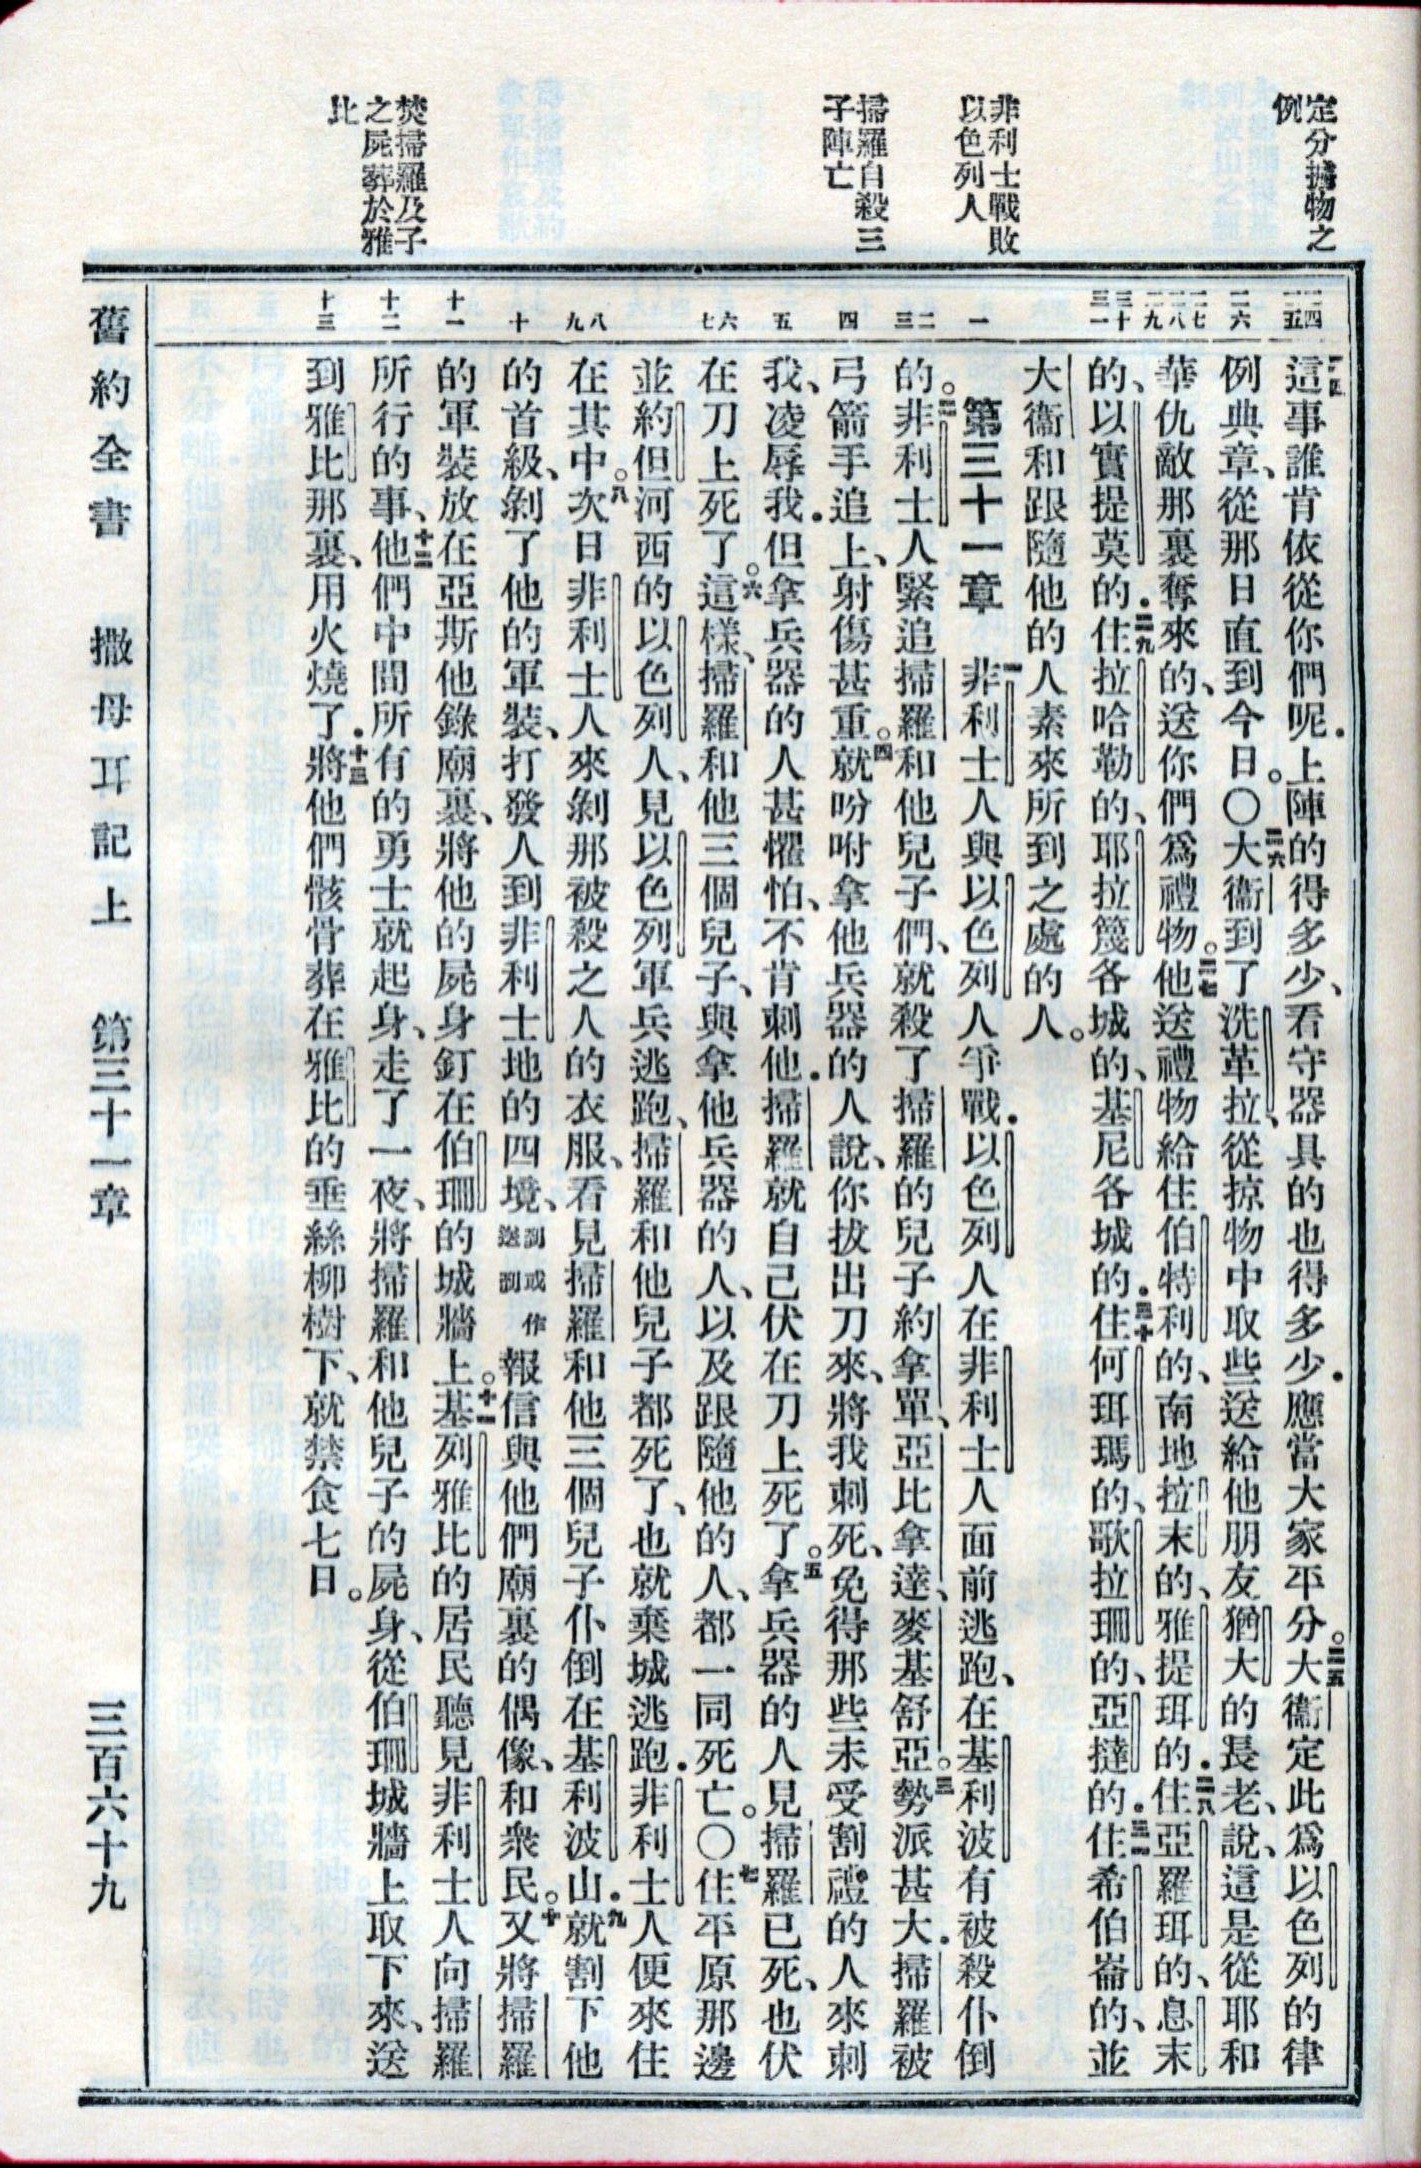 定分擄物之
例
非利士戰敗
以色列人
掃羅自殺三
子陣亡
焚掃羅及子
之屍葬於雅
比
二四 二五
二六
二七 二八 二九
三十 三一
一
二 三
四
五
六 七
八 九
十
十一
十二
十三
二五這事誰肯依從你們呢．上陣的得多少、看守器具的也得多少．應當大家平分。二五大衞定此爲以色列的律
例典章、從那日直到今日。〇二六大衞到了洗革拉、從掠物中取些送給他朋友猶大的長老、說、這是從耶和
華仇敵那裏奪來的、送你們爲禮物。二七他送禮物給住伯特利的、南地拉末的、雅提珥的．二八住亞羅珥的、息末
的、以實提莫的．二九住拉哈勒的、耶拉篾各城的、基尼各城的．三十住何珥瑪的、歌拉珊的、亞撻的．三一住希伯崙的、並
大衞和跟隨他的人素來所到之處的人。
第三十一章　一非利士人與以色列人爭戰．以色列人在非利士人面前逃跑、在基利波有被殺仆倒
的。二非利士人緊追掃羅和他兒子們、就殺了掃羅的兒子約拿單、亞比拿達、麥基舒亞。三勢派甚大．掃羅被
弓箭手追上、射傷甚重。四就吩咐拿他兵器的人說、你拔出刀來、將我刺死、免得那些未受割禮的人來刺
我、凌辱我．但拿兵器的人甚懼怕、不肯刺他．掃羅就自己伏在刀上死了。五拿兵器的人見掃羅已死、也伏
在刀上死了。六這樣、掃羅和他三個兒子、與拿他兵器的人、以及跟隨他的人、都一同死亡。〇七住平原那邊
並約但河西的以色列人、見以色列軍兵逃跑、掃羅和他兒子都死了、也就棄城逃跑．非利士人便來住
在其中。八次日非利士人來剝那被殺之人的衣服、看見掃羅和他三個兒子仆倒在基利波山．九就割下他
的首級、剝了他的軍裝、打發人到非利士地的四境、到或作送到報信與他們廟裏的偶像、和衆民。十又將掃羅
的軍裝放在亞斯他錄廟裏、將他的屍身釘在伯珊的城牆上。十一基列雅比的居民聽見非利士人向掃羅
所行的事、十二他們中間所有的勇士就起身、走了一夜、將掃羅和他兒子的屍身、從伯珊城牆上取下來、送
到雅比那裏、用火燒了．十三將他們骸骨葬在雅比的垂絲柳樹下、就禁食七日。
舊約全書　撒母耳記上　第三十一章　三百六十九